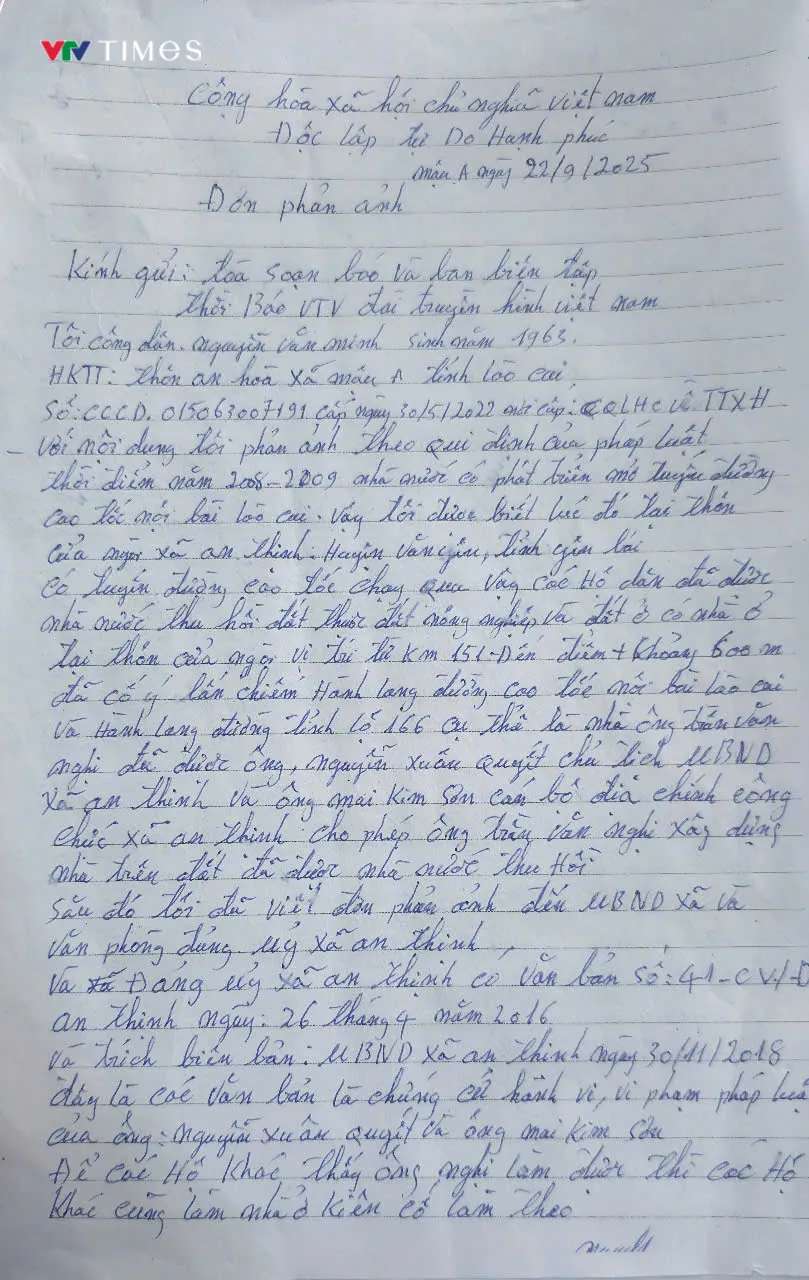 VTV TIMES
Cộng hòa xã hội chủ nghĩa việt nam
Độc lập tự Do Hạnh phúc
mậu A ngày 22/9/2025
Đơn phản ảnh
Kính gửi: tòa soạn báo và ban biên tập
thời Báo VTV đài truyền hình việt nam
Tôi công dân. nguyễn văn minh sinh năm 1963.
HKTT: thôn an hoà xã mậu A tỉnh lào cai
Số: CCCD. 015063007191 cấp ngày 30/5/2022 nơi cấp: CQLHC về TTXH
- Với nội dung tôi phản ảnh theo qui định của pháp luật
thời điểm năm 2008-2009 nhà nước có phát triển mở tuyến đường
cao tốc nội bài lào cai. vậy tôi được biết lúc đó tại thôn
cửa ngòi xã an thịnh. Huyện văn yên, tỉnh yên bái
có tuyến đường cao tốc chạy qua vậy các Hộ dân đã được
nhà nước thu hồi đất thuộc đất nông nghiệp và đất ở có nhà ở
tại thôn cửa ngòi vị trí từ Km 151-Đến điểm + khoảng 600 m
đã cố ý lấn chiếm Hành lang đường cao tốc nội bài lào cai
và Hành lang đường tỉnh lộ 166 cụ thể là nhà ông trần văn
nghị đã được ông, nguyễn xuân quyết chủ tịch UBND
xã an thịnh và ông mai kim sơn cán bộ địa chính công
chức xã an thịnh cho phép ông trần văn nghị xây dựng
nhà trên đất đã được nhà nước thu Hồi
Sau đó tôi đã viết đơn phản ảnh đến UBND xã và
văn phòng đảng uỷ xã an thịnh
và Đảng uỷ xã an thịnh có văn bản số: 41-CV/-Đ
an thịnh ngày: 26 tháng 4 năm 2016
và trích biên bản: UBND xã an thịnh ngày 30/11/2018
đây là các văn bản là chứng cứ hành vi, vi phạm pháp luậ
của ông: nguyễn xuân quyết và ông mai kim sơn
Để các Hộ khác thấy ông nghị làm được thì các Hộ
khác cũng làm nhà ở kiên cố làm theo